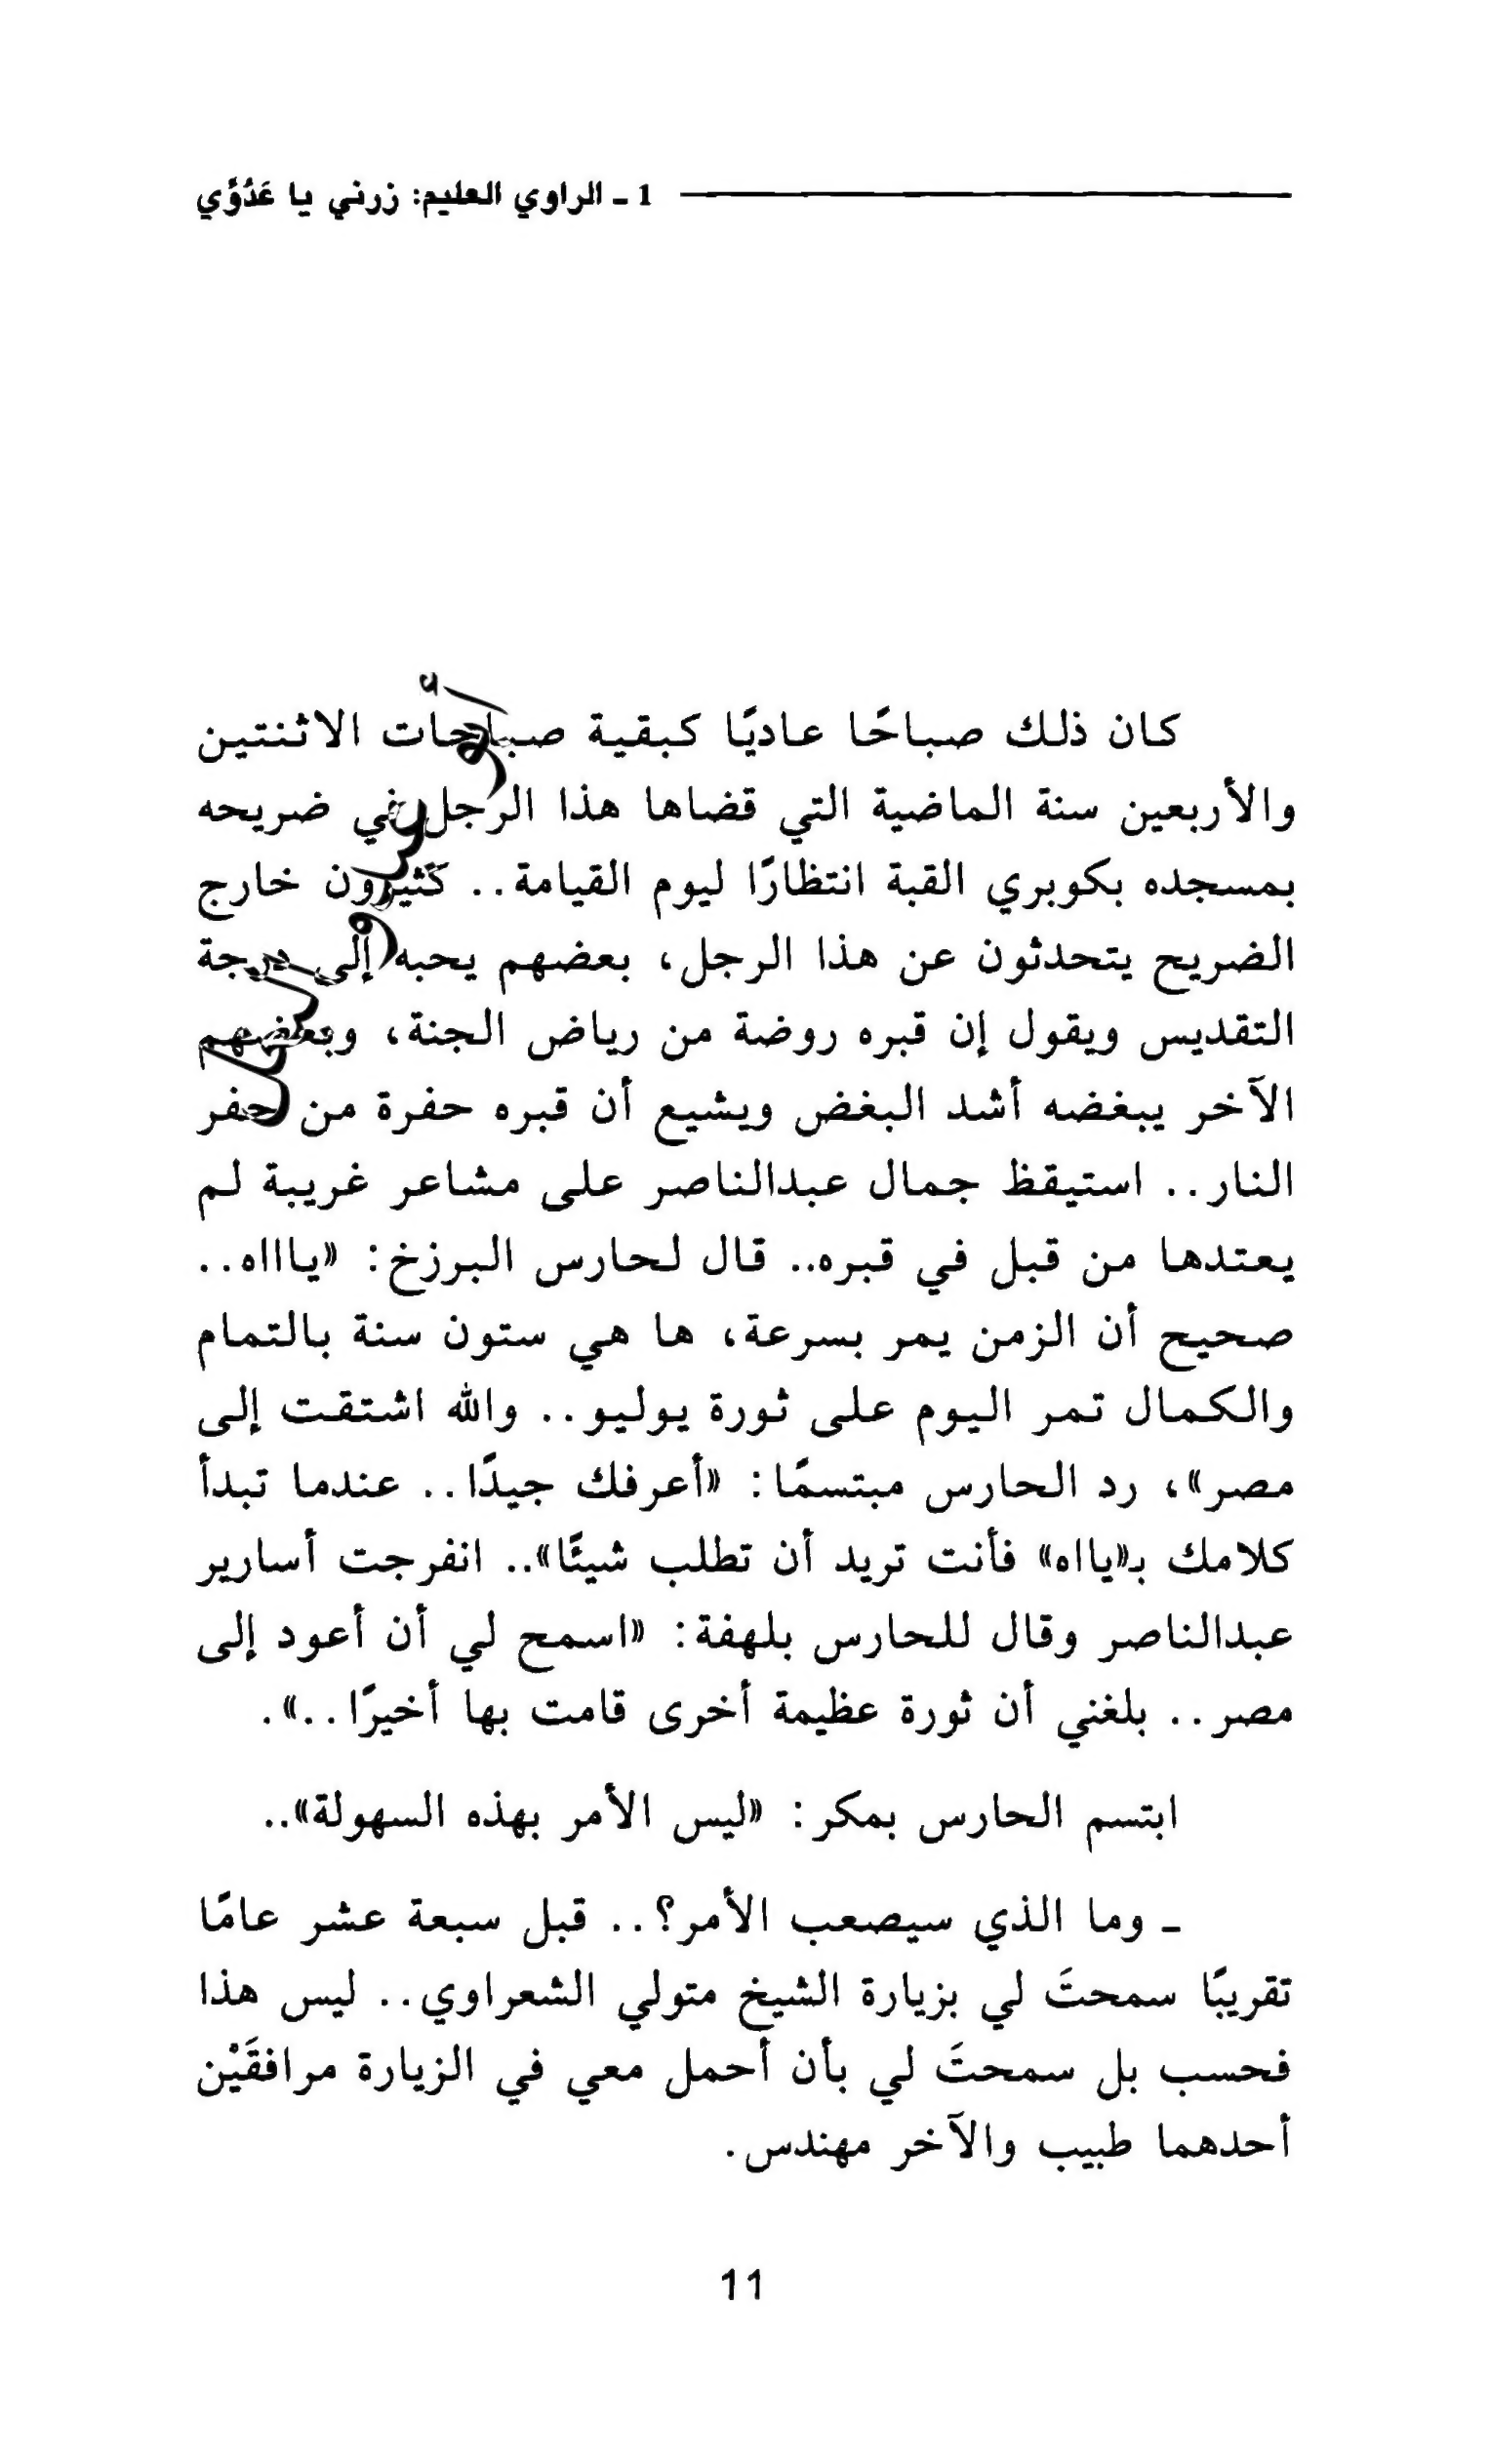 1 ـ الراوي العليم: زرني يا عَدُوِّي
كان ذلك صباحًا عاديًا كبقية صباحات الاثنتين
والأربعين سنة الماضية التي قضاها هذا الرجل في ضريحه
بمسجده بكوبري القبة انتظارًا ليوم القيامة.. كثيرون خارج
الضريح يتحدثون عن هذا الرجل، بعضهم يحبه إلى درجة
التقديس ويقول إن قبره روضة من رياض الجنة، وبعضهم
الآخر يبغضه أشد البغض ويشيع أن قبره حفرة من حفر
النار.. استيقظ جمال عبدالناصر على مشاعر غريبة لم
يعتدها من قبل في قبره.. قال لحارس البرزخ: «ياااه..
صحيح أن الزمن يمر بسرعة، ها هي ستون سنة بالتمام
والكمال تمر اليوم على ثورة يوليو.. والله اشتقت إلى
مصر»، رد الحارس مبتسمًا: «أعرفك جيدًا.. عندما تبدأ
كلامك بـ«يااه» فأنت تريد أن تطلب شيئًا».. انفرجت أسارير
عبدالناصر وقال للحارس بلهفة: «اسمح لي أن أعود إلى
مصر.. بلغني أن ثورة عظيمة أخرى قامت بها أخيرًا..».
ابتسم الحارس بمكر: «ليس الأمر بهذه السهولة»..
ـ وما الذي سيصعب الأمر؟.. قبل سبعة عشر عامًا
تقريبًا سمحتَ لي بزيارة الشيخ متولي الشعراوي.. ليس هذا
فحسب بل سمحتَ لي بأن أحمل معي في الزيارة مرافقَيْن
أحدهما طبيب والآخر مهندس.
11